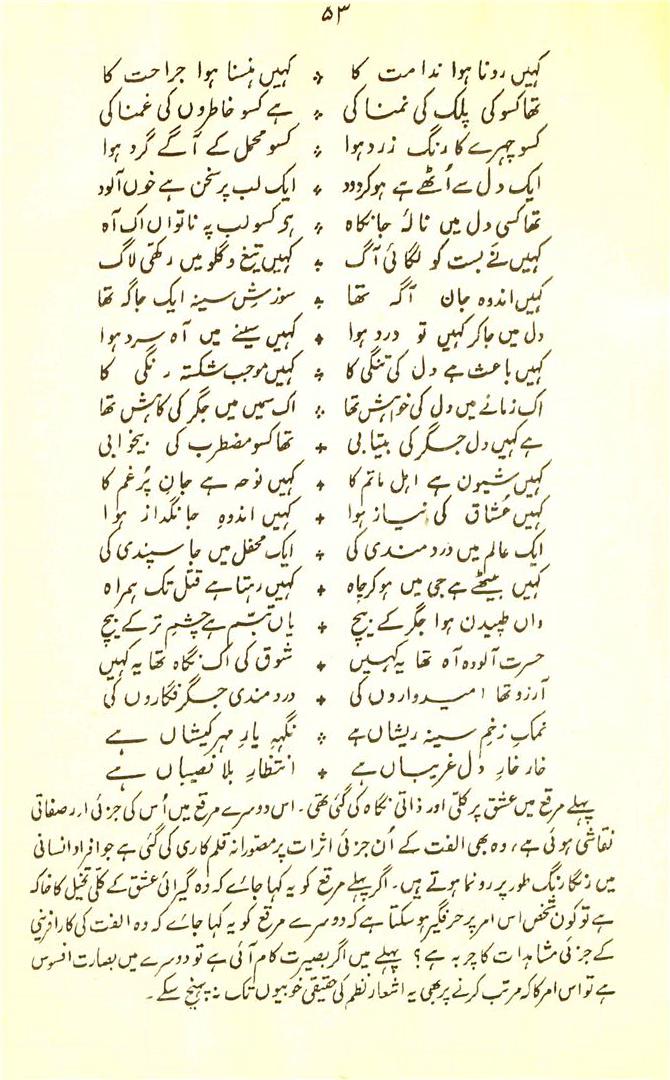 ۵۳
کہیں رونا ہوا ندامت کا ٭ کہیں ہنسنا ہوا جراحت کا
تھا کسو کی پلک کی نمناکی ٭ ہے کسو خاطروں کی غمناکی
کسو چہرے کا رنگ زرد ہوا ٭ کسو محمل کے آگے گرد ہوا
ایک دل سے اُٹھے ہے ہو کر دود ٭ ایک لب پر سخن ہے خوں آلود
تھا کسی دل میں نالۂ جانکاہ ٭ ہے کسو لب پہ ناتواں اک آہ
کہیں نَے بست کو لگائی آگ ٭ کہیں تیغ و گلو میں رکھی لاگ
کہیں اندوہ جان آگہ تھا ٭ سوزشِ سینہ ایک جاگہ تھا
دل میں جا کر کہیں تو درد ہوا ٭ کہیں سینے میں آہ سرد ہوا
کہیں باعث ہے دل کی تنگی کا ٭ کہیں موجب شکستہ رنگی کا
اک زمانے میں دل کی خواہش تھا ٭ اک سمیں میں جگر کی کاہش تھا
ہے کہیں دل جگر کی بیتابی ٭ تھا کسو مضطرب کی بیخوابی
کہیں شیون ہے اہل ماتم کا ٭ کہیں نوحہ ہے جانِ پُر غم کا
کہیں عشاق کی نیاز ہوا ٭ کہیں اندوہِ جانگداز ہوا
ایک عالم میں دردمندی کی ٭ ایک محفل میں جا سپندی کی
کہیں بیٹھے ہے جی میں ہو کر چاہ ٭ کہیں رہتا ہے قتل تک ہمراہ
واں طپیدن ہوا جگر کے بیچ ٭ یاں تبسّم ہے چشمِ تر کے بیچ
حسرت آلودہ آہ تھا یہ کہیں ٭ شوق کی اک نگاہ تھا یہ کہیں
آرزو تھا امیدواروں کی ٭ دردمندی جگر فگاروں کی
نمکِ زخمِ سینہ ریشاں ہے ٭ نگہِ یارِ مہر کیشاں ہے
خار خارِ دلِ غریباں ہے ٭ انتظارِ بلا نصیباں ہے
پہلے مرقع میں عشق پر کلّی اور ذاتی نگاہ کی گئی تھی۔ اس دوسرے مرقع میں اُس کی جزئی اور صفاتی
نقاشی ہوئی ہے، وہ بھی الفت کے اُن جزئی اثرات پر مصورانہ قلم کاری کی گئی ہے جو افرادِ انسانی
میں رنگا رنگ طور پر رونما ہوتے ہیں۔ اگر پہلے مرقع کو یہ کہا جائے کہ وہ گیرائی عشق کے کلّی تخیل کا خاکہ
ہے تو کون شخص اس امر پر حرفگیر ہو سکتا ہے کہ دوسرے مرقع کو یہ کہا جائے کہ وہ الفت کی کارآفرینی
کے جزئی مشاہدات کا چربہ ہے؟ پہلے میں اگر بصیرت کام آئی ہے تو دوسرے میں بصارت افسوس
ہے تو اس امر کا کہ مرتب کرنے پر بھی یہ اشعار نظم کی حقیقی خوبیوں تک نہ پہنچ سکے۔